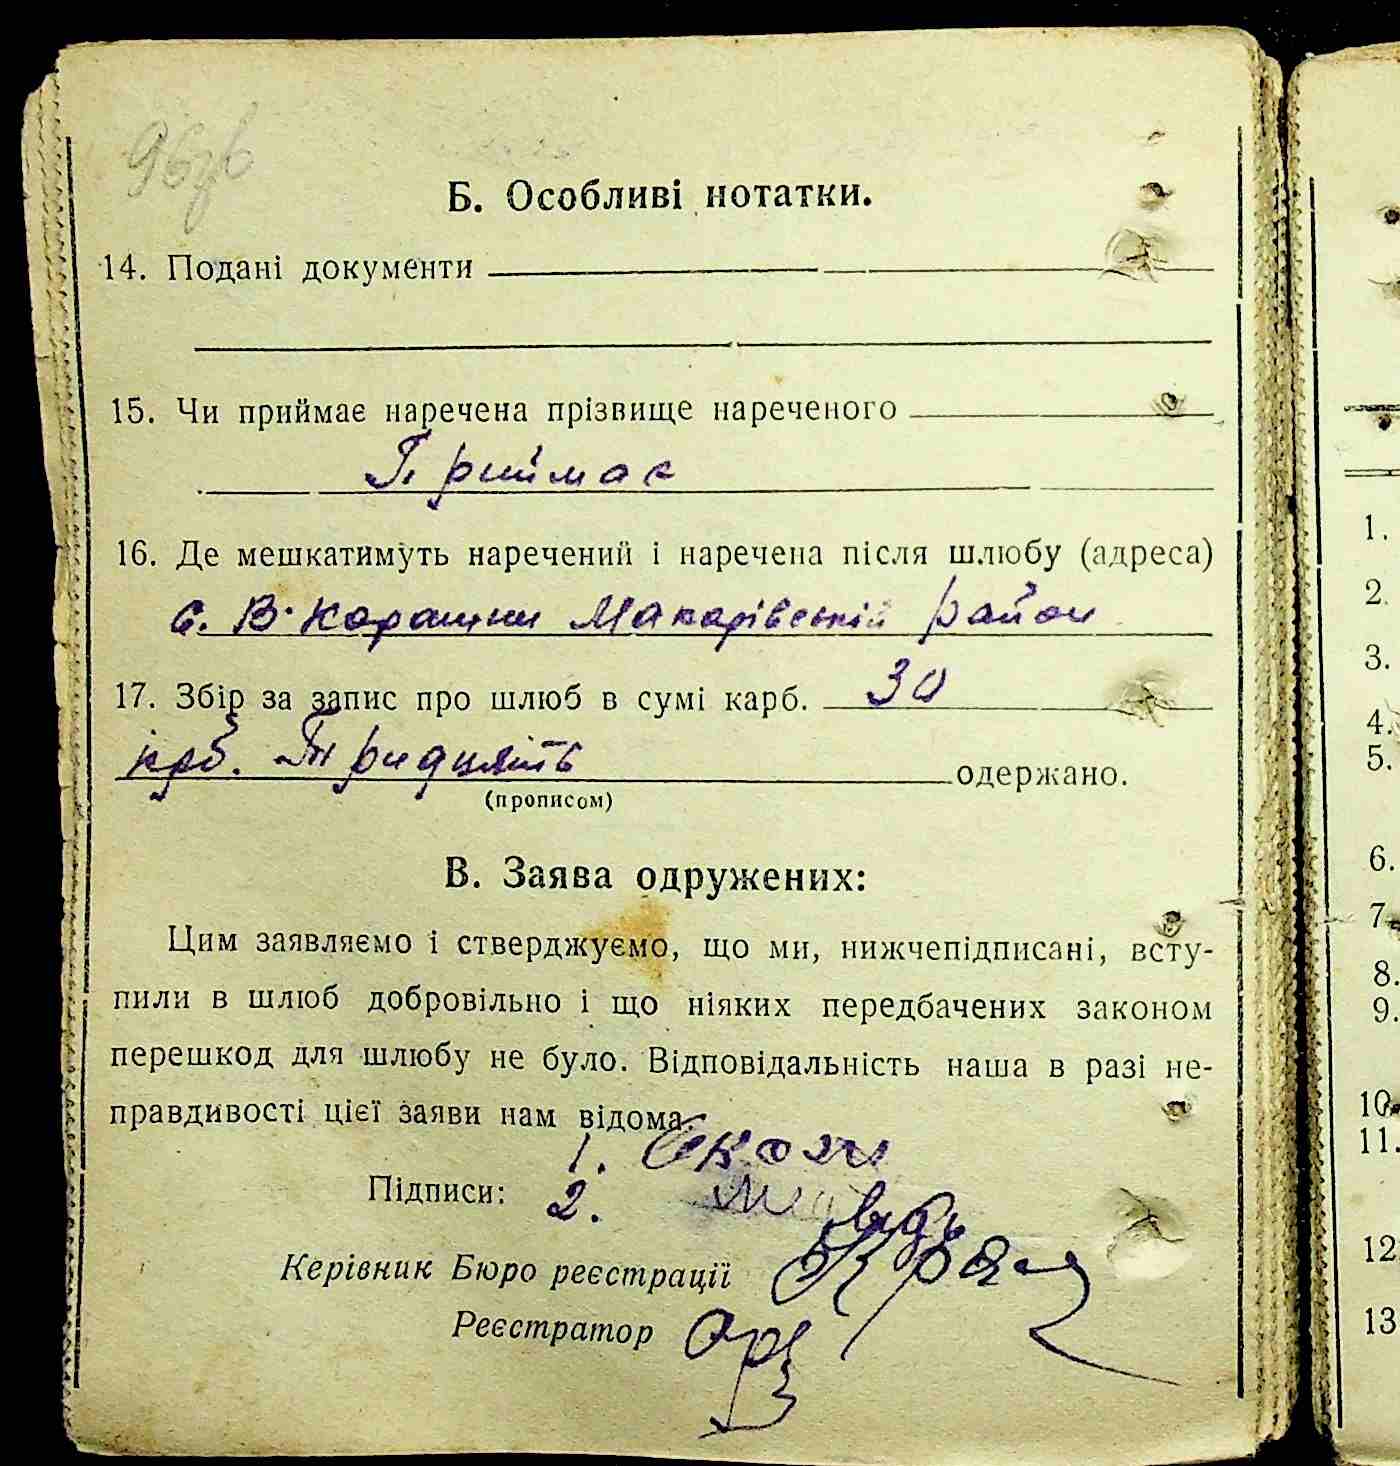 Б. Особливі нотатки.
14. Подані документи
15. Чи приймає наречена прізвище нареченого
Приймає
16. Де мешкатимуть наречений і наречена після шлюбу (адреса)
с. В. Карашин Макарівській район
17. Збір за запис про шлюб в сумі карб. 30
крб. Тридцять одержано.
(прописом)
В. Заява одружених:
Цим заявляємо і стверджуємо, що ми, нижчепідписані, всту-
пили в шлюб добровільно і що ніяких передбачених законом
перешкод для шлюбу не було. Відповідальність наша в разі не-
правдивості цієї заяви нам відома.
1.
Підписи: 2.
Керівник Бюро реєстрації
Реєстратор
1.
2.
3.
4.
5.
6.
7.
8.
9.
10.
11.
12
13